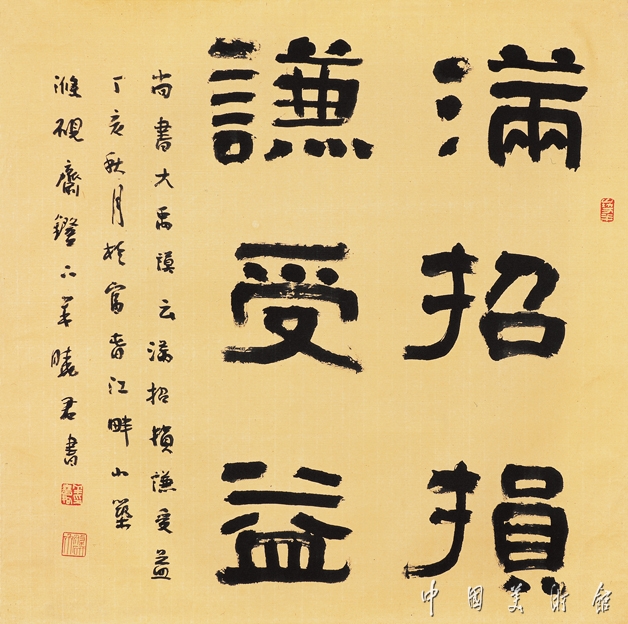 滿招損
謙受益
尚書大禹謨云滿招損謙受益
丁亥秋月於富春江畔小築
滌硯齋鐙下姜曉君書
中國美術館